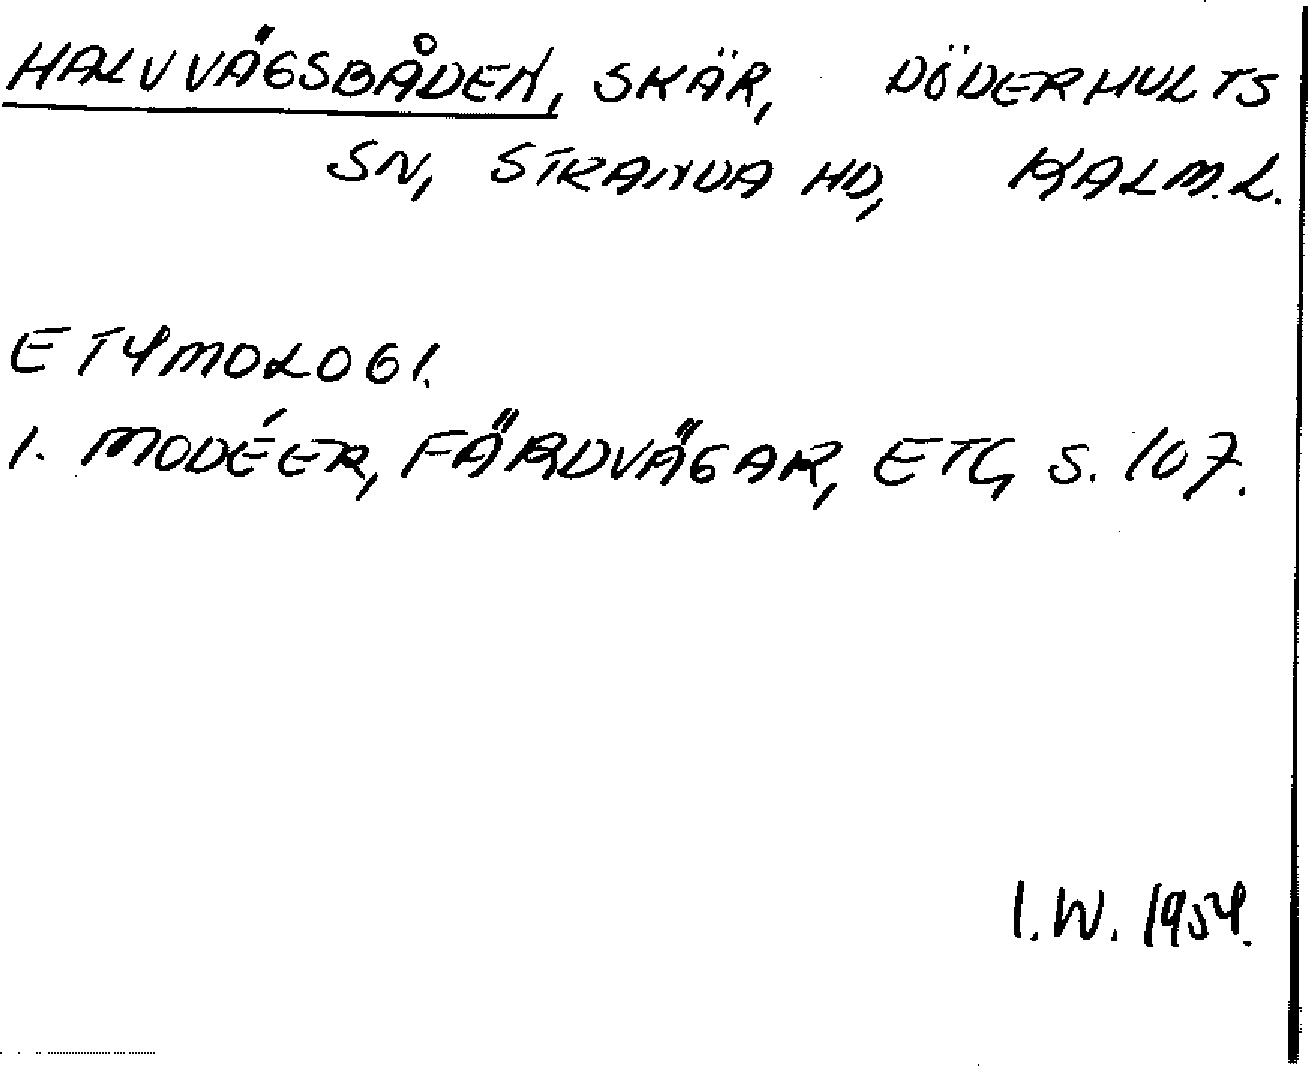 HALVVÄGSBÅDEN, SKÄR, DÖDERHULTS
SN, STRANDA HD, KALM.L.
ETYMOLOGI.
1. MODÉER, FÄRDVÄGAR, ETC, S. 107.
I.W. 1954.